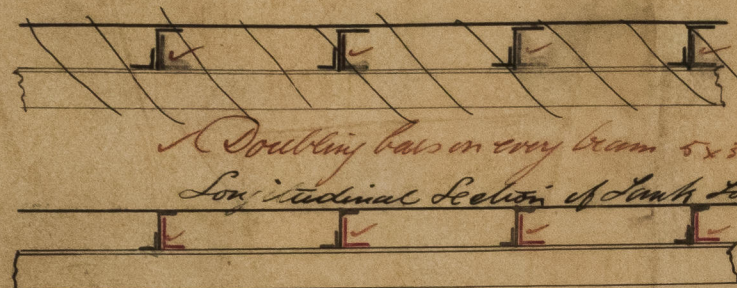 Doubling bars on every beam 5 x 3
Longitudinal Section of Tank